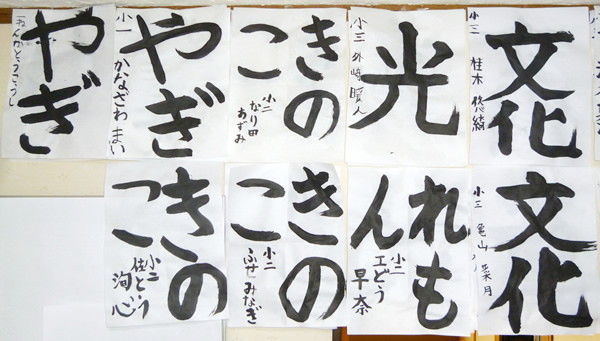 文化
小三 桂木 悠綺
光
小三 外崎 暖人
きの
こ
小二 かり田 あずみ
やぎ
小一 かなざわ まい
やぎ
文化
小三 亀山 月
れも
ん
小二 工どう 早奈
きの
こ
小二 ふせ みなぎ
きの
こ
小二 佐とう 洵心